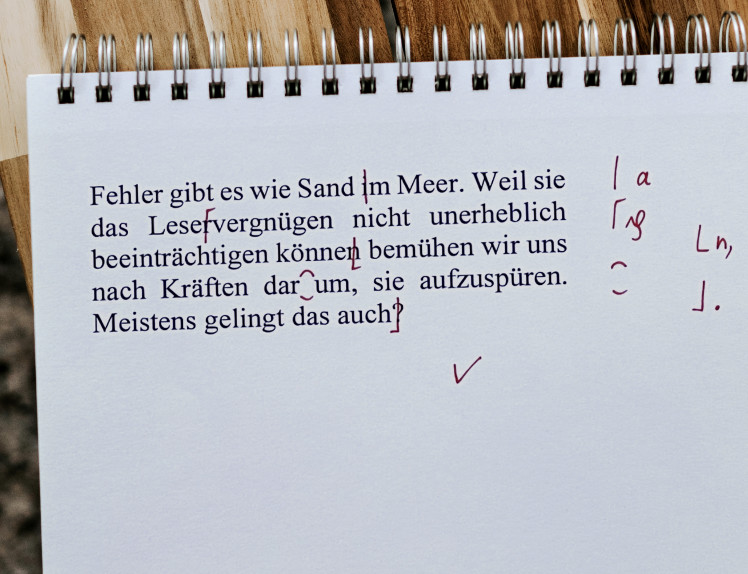 Fehler gibt es wie Sand im Meer. Weil sie | a
das Leservergnügen nicht unerheblich ⌈ ₰
beeinträchtigen können bemühen wir uns ⌊ n,
nach Kräften dar um, sie aufzuspüren. ⌢⌣
Meistens gelingt das auch? ⌋ .
✓